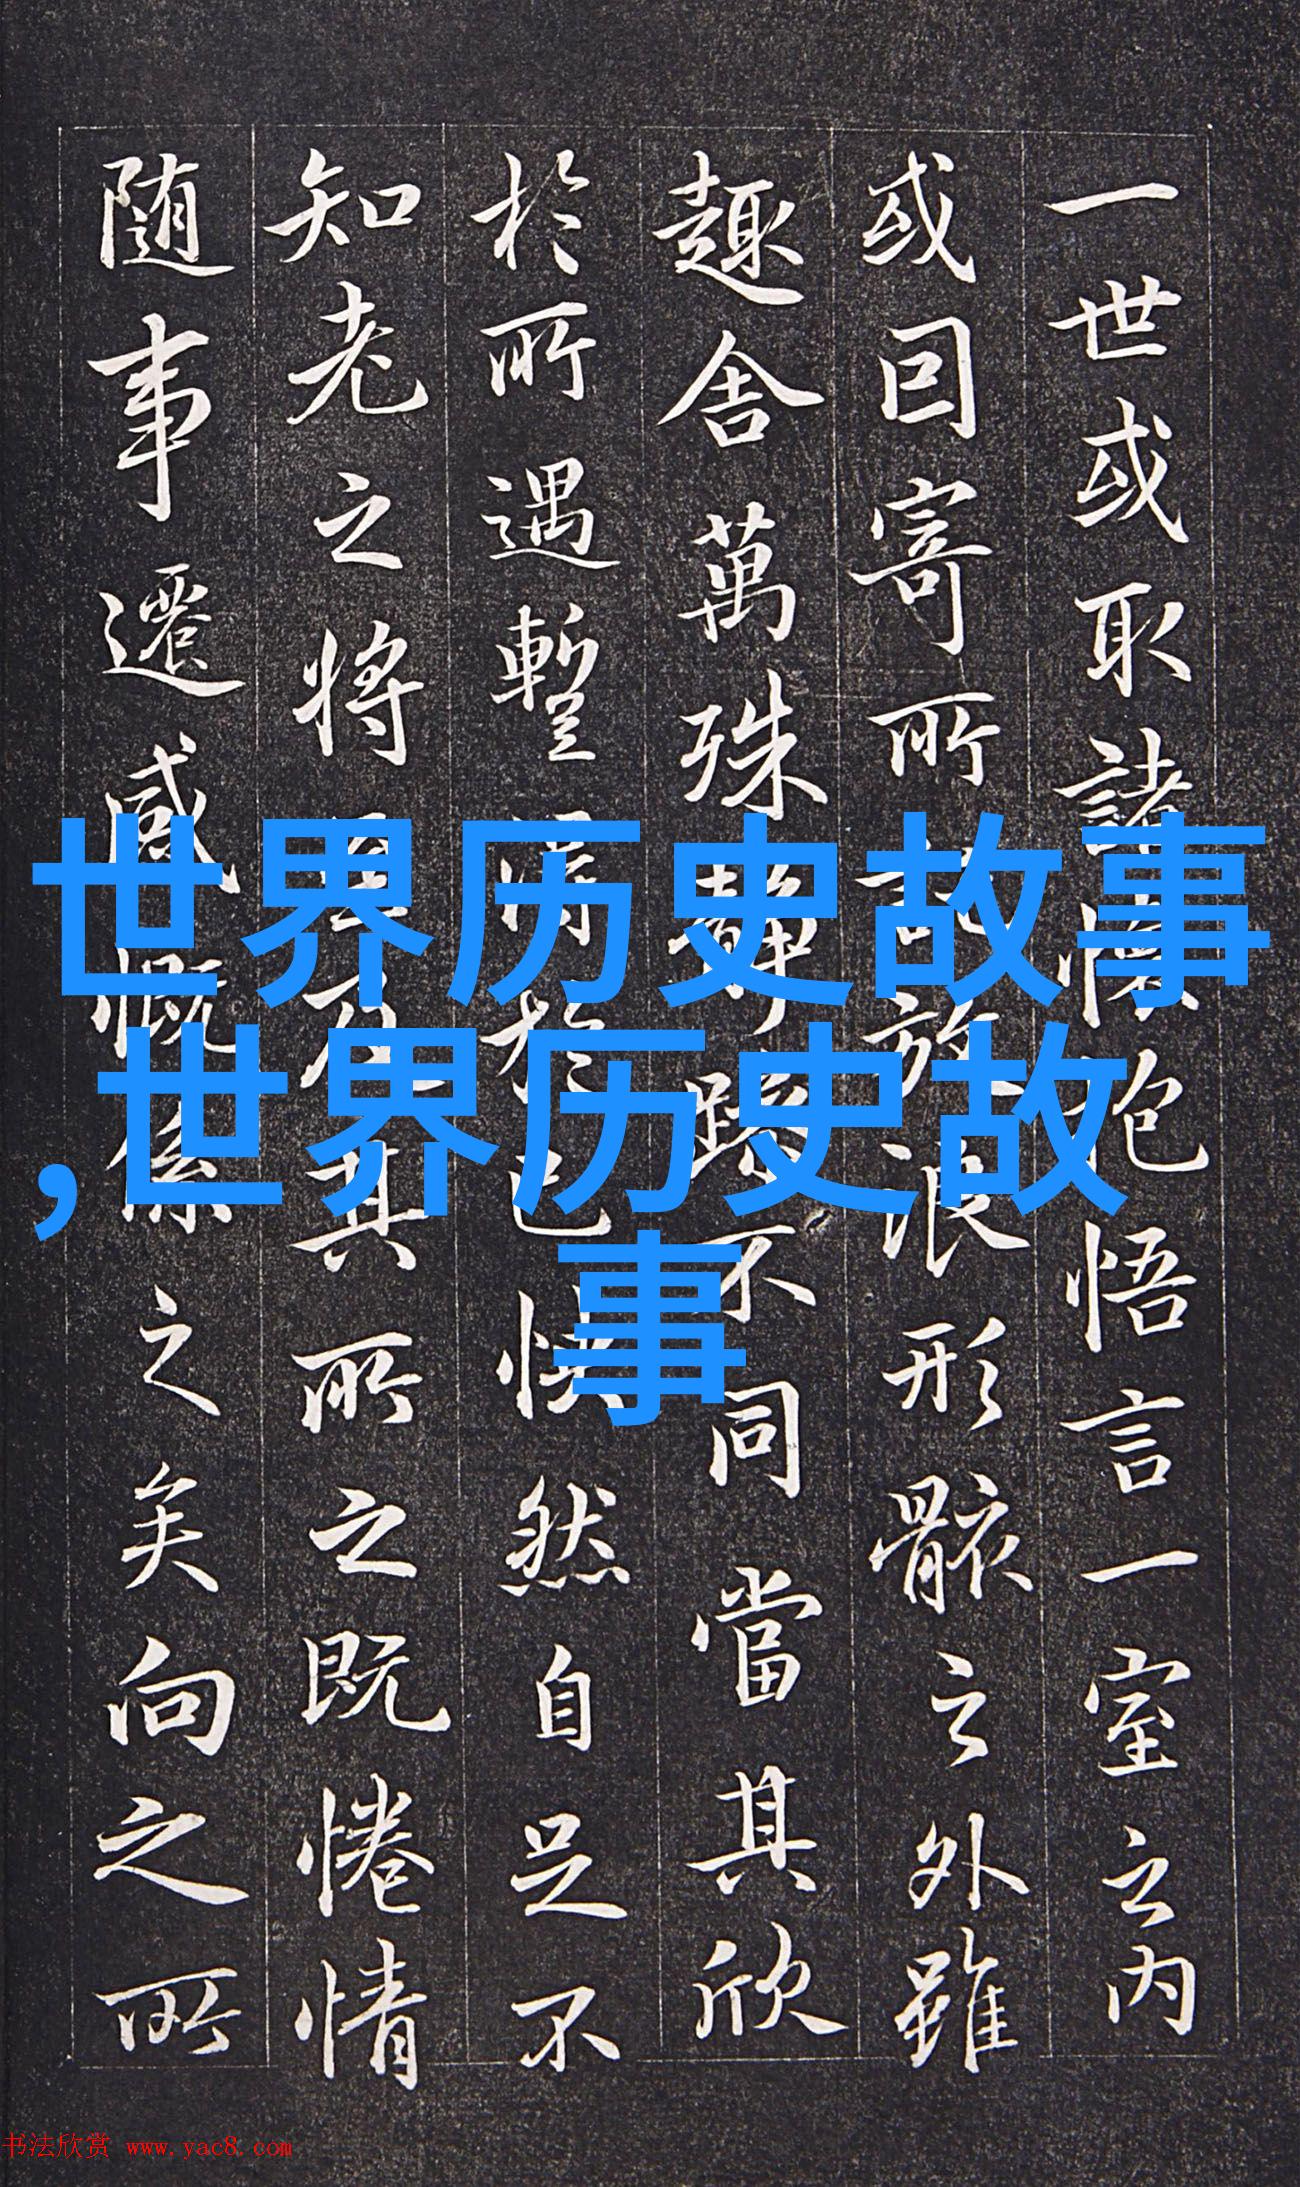 一世或取諸懷抱悟言一室之内
或因寄所託放浪形骸之外雖
趣舍萬殊静躁不同當其欣
於所遇暫得於己怏然自足不
知老之将至及其所之既惓情
随事遷感慨係之矣向之所
世界历史故事
,世界历史故
事
书法欣赏 www.yac8.com